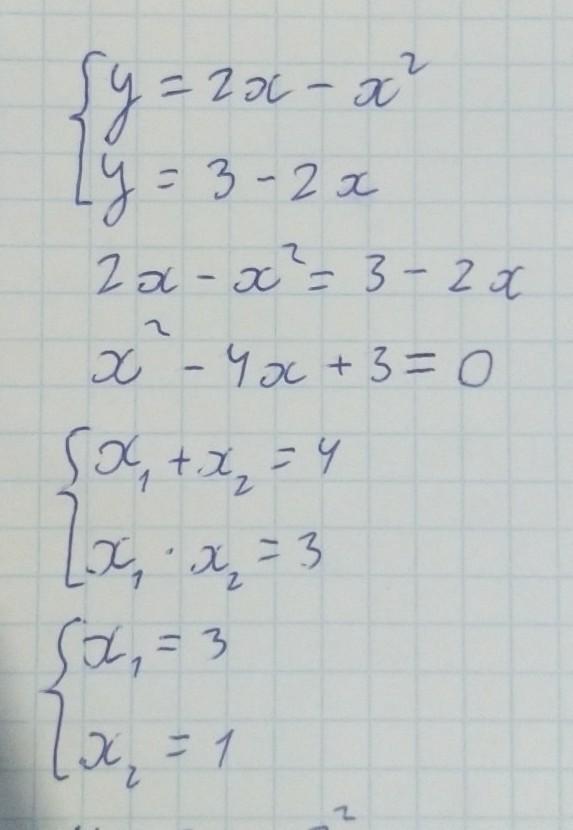 y = 2x - x²
y = 3 - 2x
2x - x² = 3 - 2x
x² - 4x + 3 = 0
x₁ + x₂ = 4
x₁ · x₂ = 3
x₁ = 3
x₂ = 1